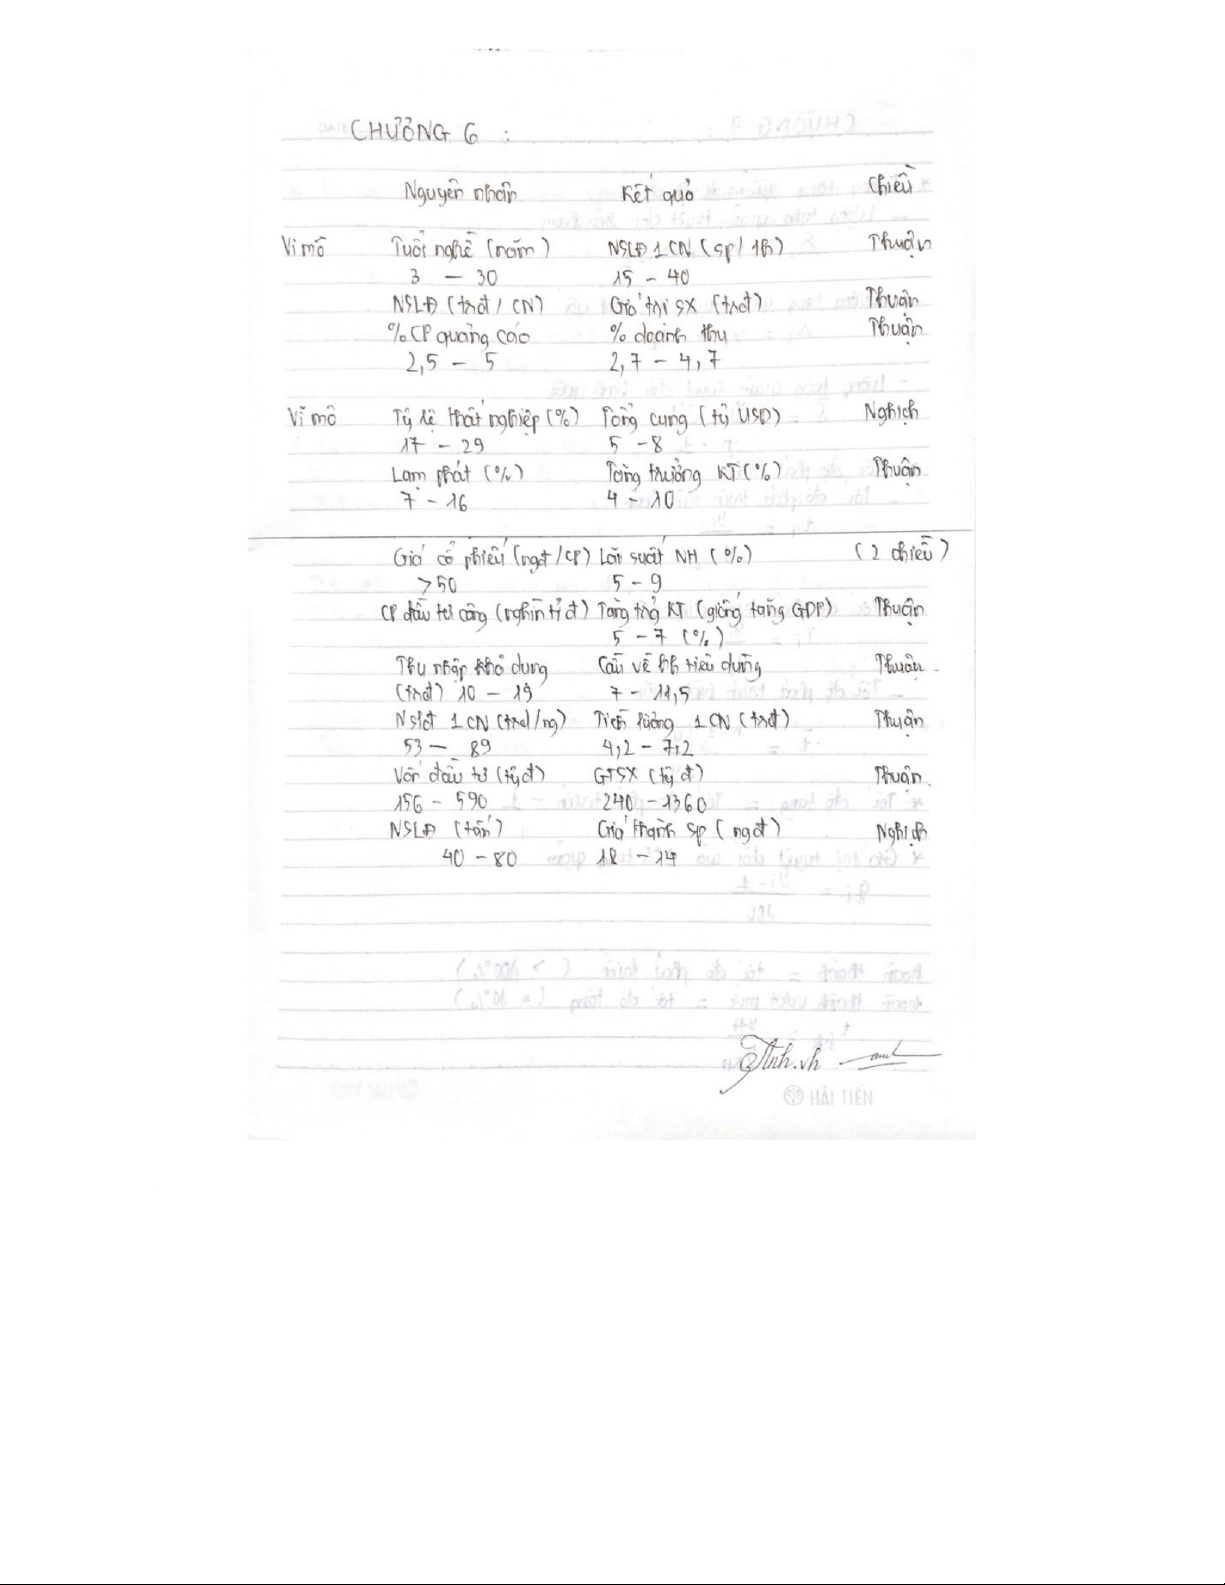 CHƯƠNG 6 :
Nguyên nhân Kết quả Chiều
Vi mô Tuổi nghề (năm) NSLĐ 1 CN (sp/1h) Thuận
3 – 30 15 – 40
NSLĐ (trđ/CN) Giá trị SX (trđ) Thuận
% CP quảng cáo % doanh thu Thuận
2,5 – 5 2,7 – 4,7
Vĩ mô Tỷ lệ thất nghiệp (%) Tổng cung (tỷ USD) Nghịch
17 – 29 5 – 8
Lạm phát (%) Tăng trưởng KT (%) Thuận
7 – 16 4 – 10
Giá cổ phiếu (ngđ/CP) Lãi suất NH (%) (2 chiều)
>50 5 – 9
CP đầu tư công (nghìn tỉ đ) Tăng trg KT (giống tăng GDP) Thuận
5 – 7 (%)
Thu nhập khả dụng Cầu về hh tiêu dùng Thuận
(trđ) 10 – 19 7 – 11,5
Nslđ 1 CN (trđ/ng) Tiền lương 1 CN (trđ) Thuận
53 – 89 4,2 – 7,2
Vốn đầu tư (tỷ đ) GTSX (tỷ đ) Thuận
156 – 590 240 – 1360
NSLĐ (tấn) Giá thành sp (ngđ) Nghịch
40 – 80 18 – 14
HẢI TIẾN